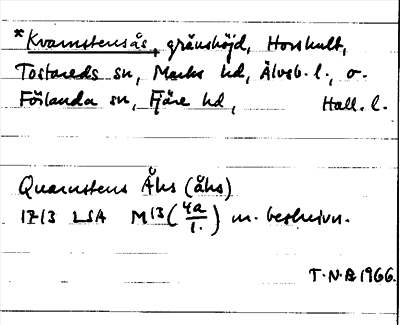 *Kvarnstensås, gränshöjd, Horshult,
Tostareds sn, Marks hd, Älvsb. l., o.
Förlanda sn, Fjäre hd, Hall. l.
Quarnstens Åhs (åhs)
1713 LSA M13 (4a/1.) m. beskrivn.
T.N.B 1966.